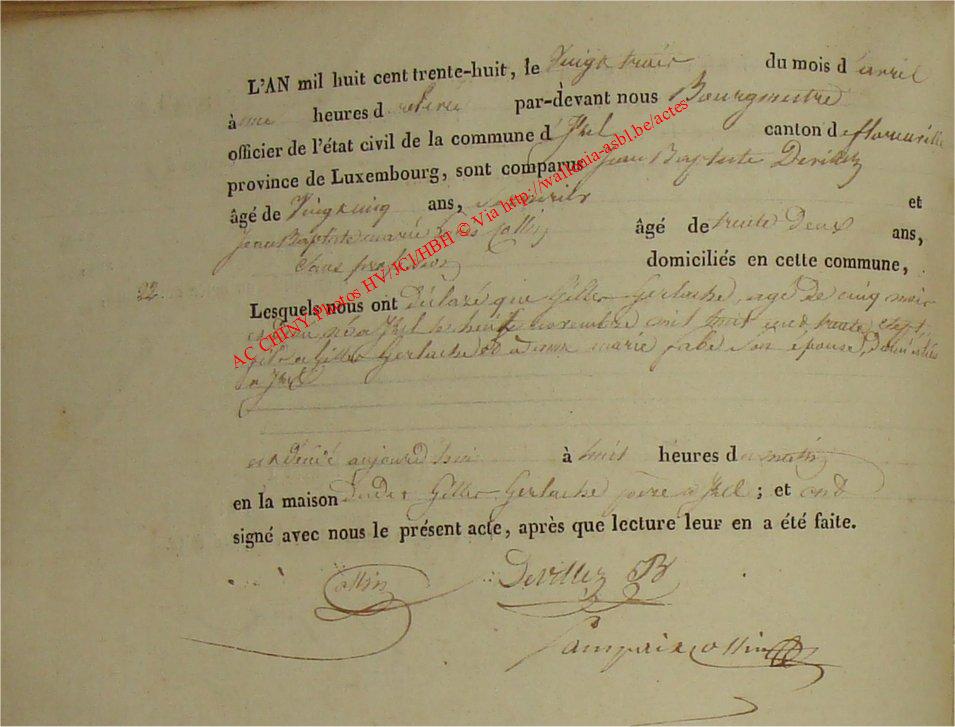 L'AN mil huit cent trente-huit, le Vingt trois du mois d'avril
à une heures de relevée par-devant nous Bourgmestre
officier de l'état civil de la commune d'Izel canton de florenville
province de Luxembourg, sont comparus Jean Baptiste Devillez
âgé de Vingt cinq ans, et
Jean Baptiste marie Collin âgé de trente Deux ans,
Sans profession domiciliés en cette commune,
22.
Lesquels nous ont déclaré que Gilles Gerlache, agé de cinq mois
né a Izel le huit novembre mil huit cent trente sept,
fils a Gilles Gerlache et a marie son epouse, domiciliés
a Izel
est décédé aujourd'hui à huit heures du matin
en la maison dudit Gilles Gerlache père a Izel ; et ont
signé avec nous le présent acte, après que lecture leur en a été faite.
Collin Devillez JB
Lampaix collin
AC CHINY Photos HV/JCI/HBH © Via http://wallonia-asbl.be/actes